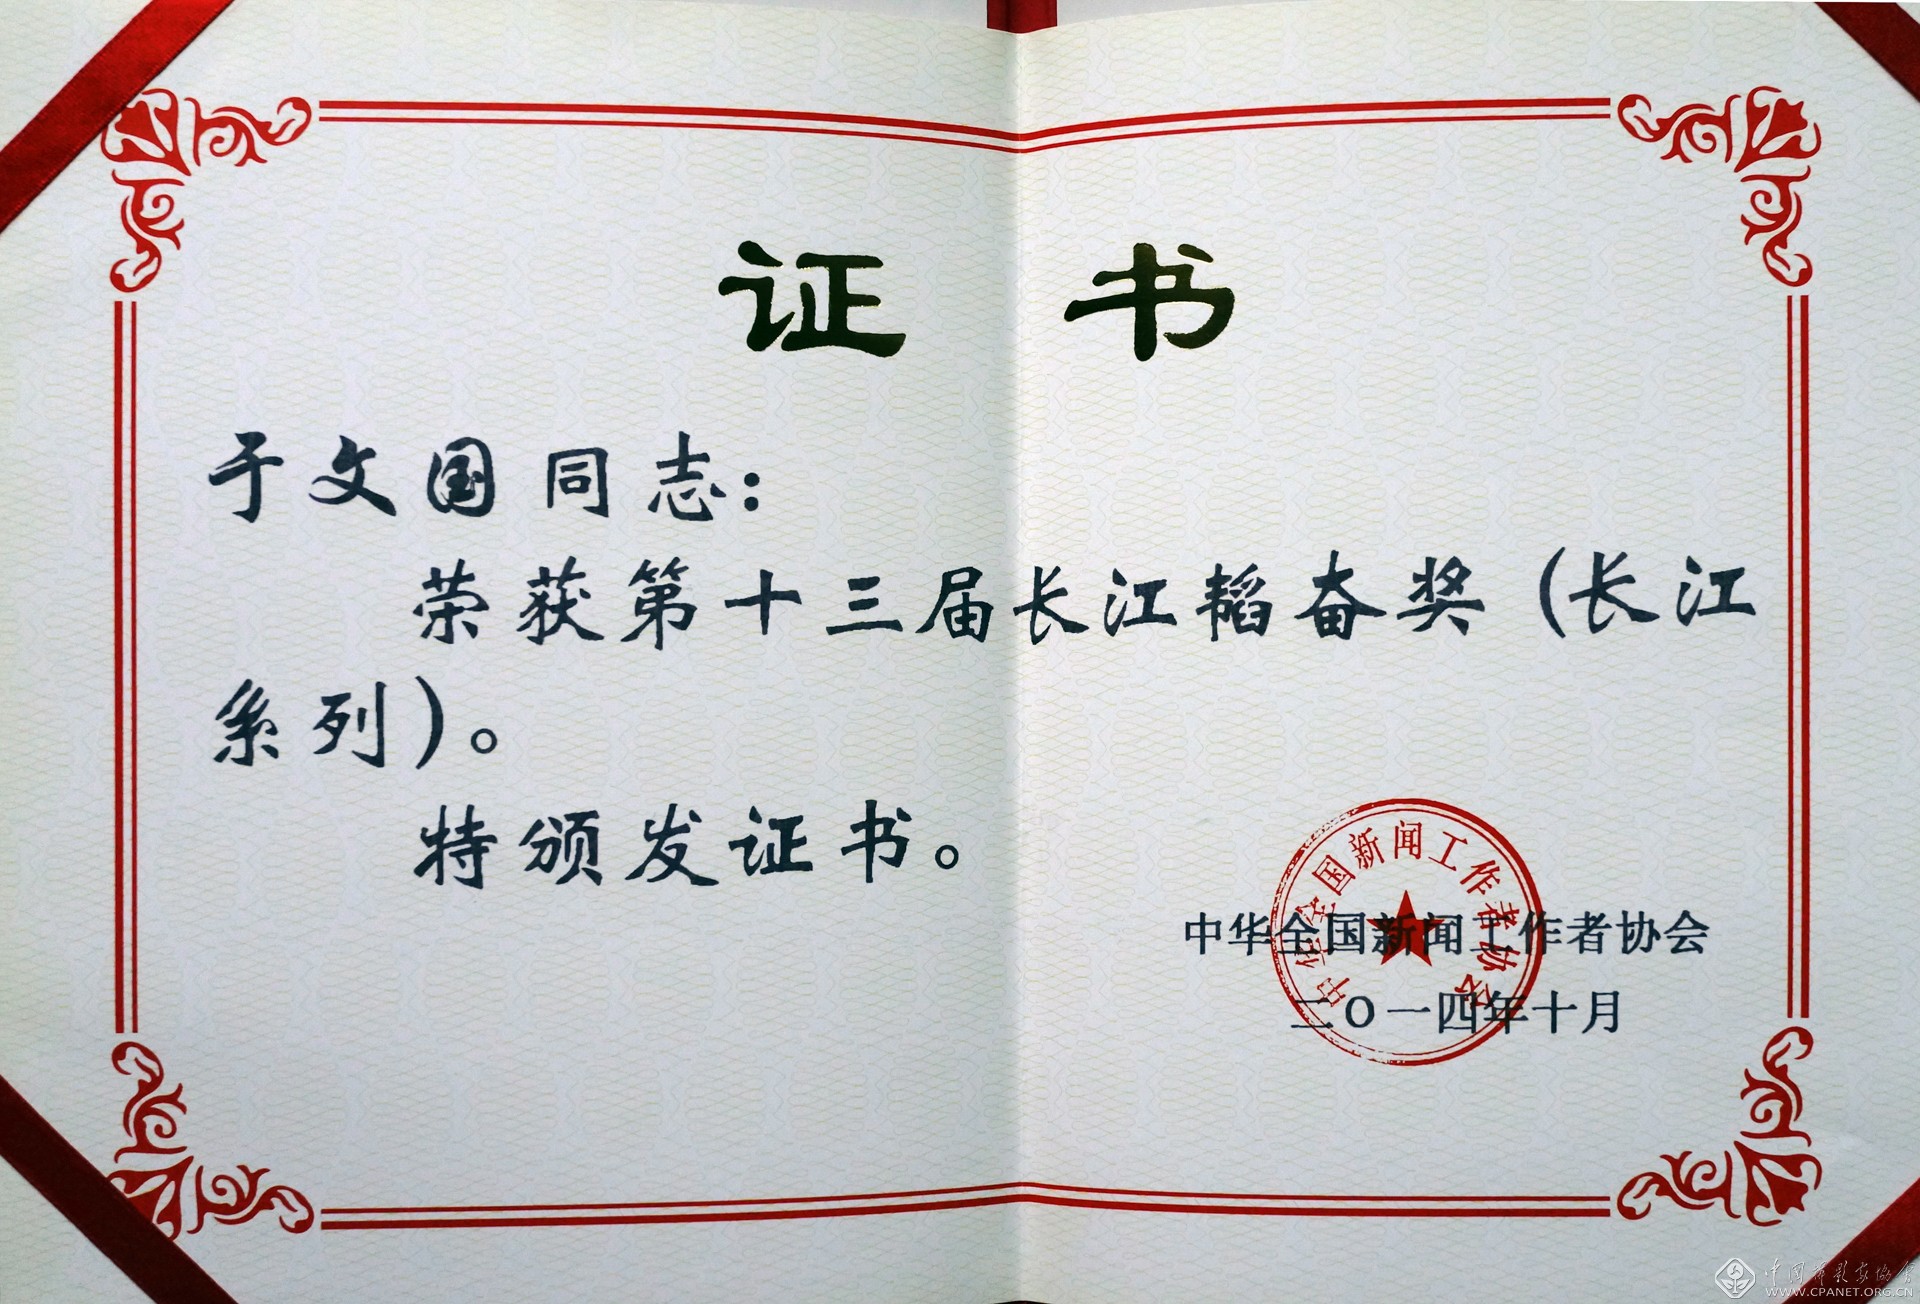 证 书
于文国同志：
荣获第十三届长江韬奋奖（长江
系列）。
特颁发证书。
中华全国新闻工作者协会
中华全国新闻工作者协会
二〇一四年十月
中国摄影家协会
WWW.CPANET.ORG.CN